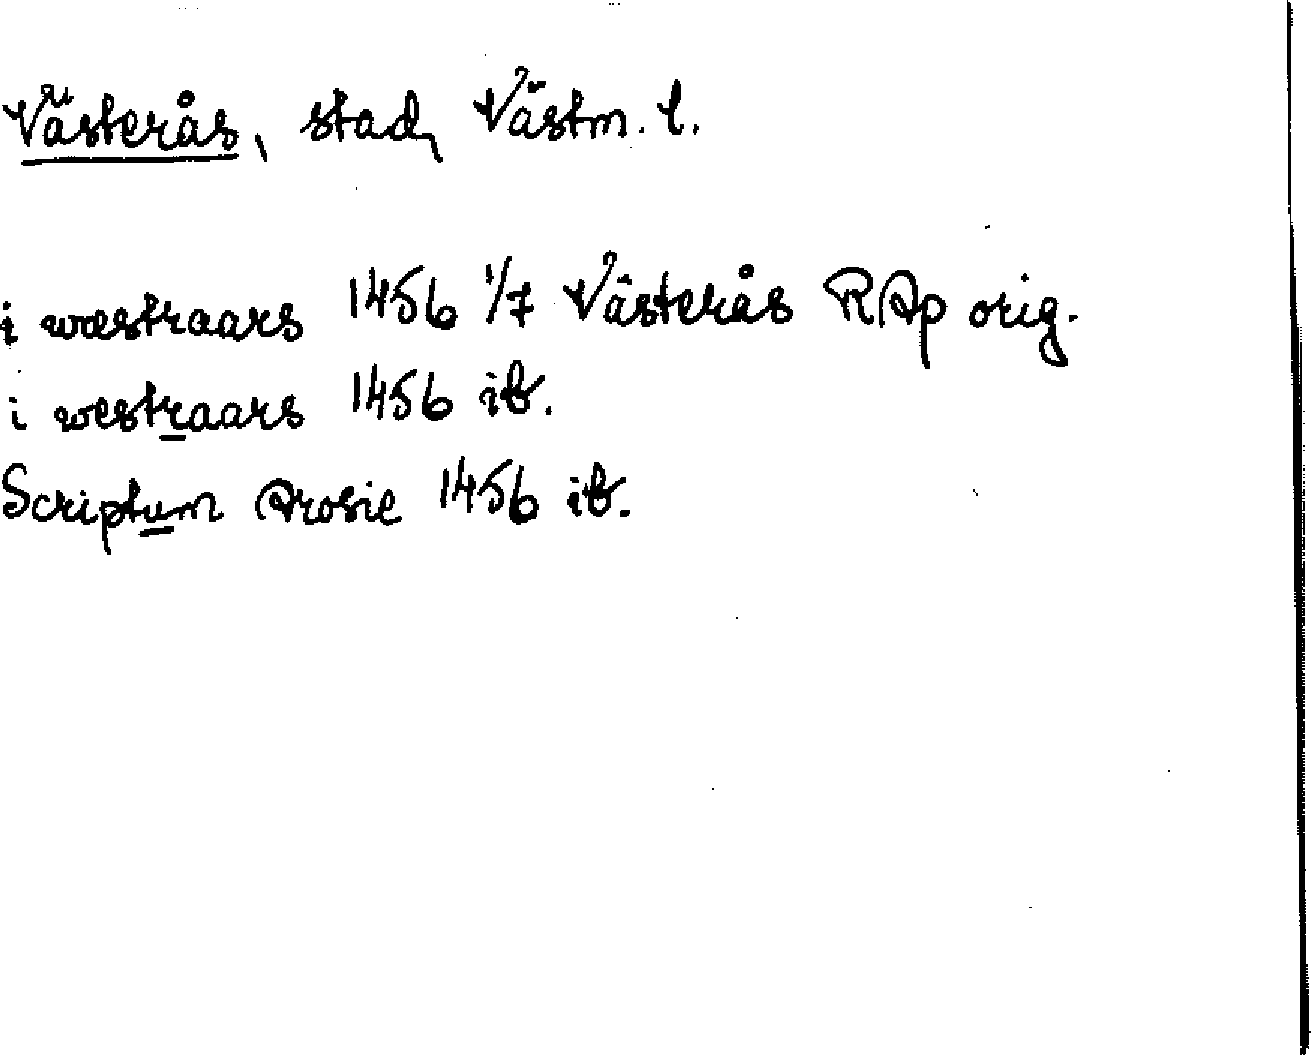 Västerås, stad, Västm. l.
i wæstraars 1456 1/7 Västerås RAp orig.
i westraars 1456 ib.
Scriptum Arosie 1456 ib.